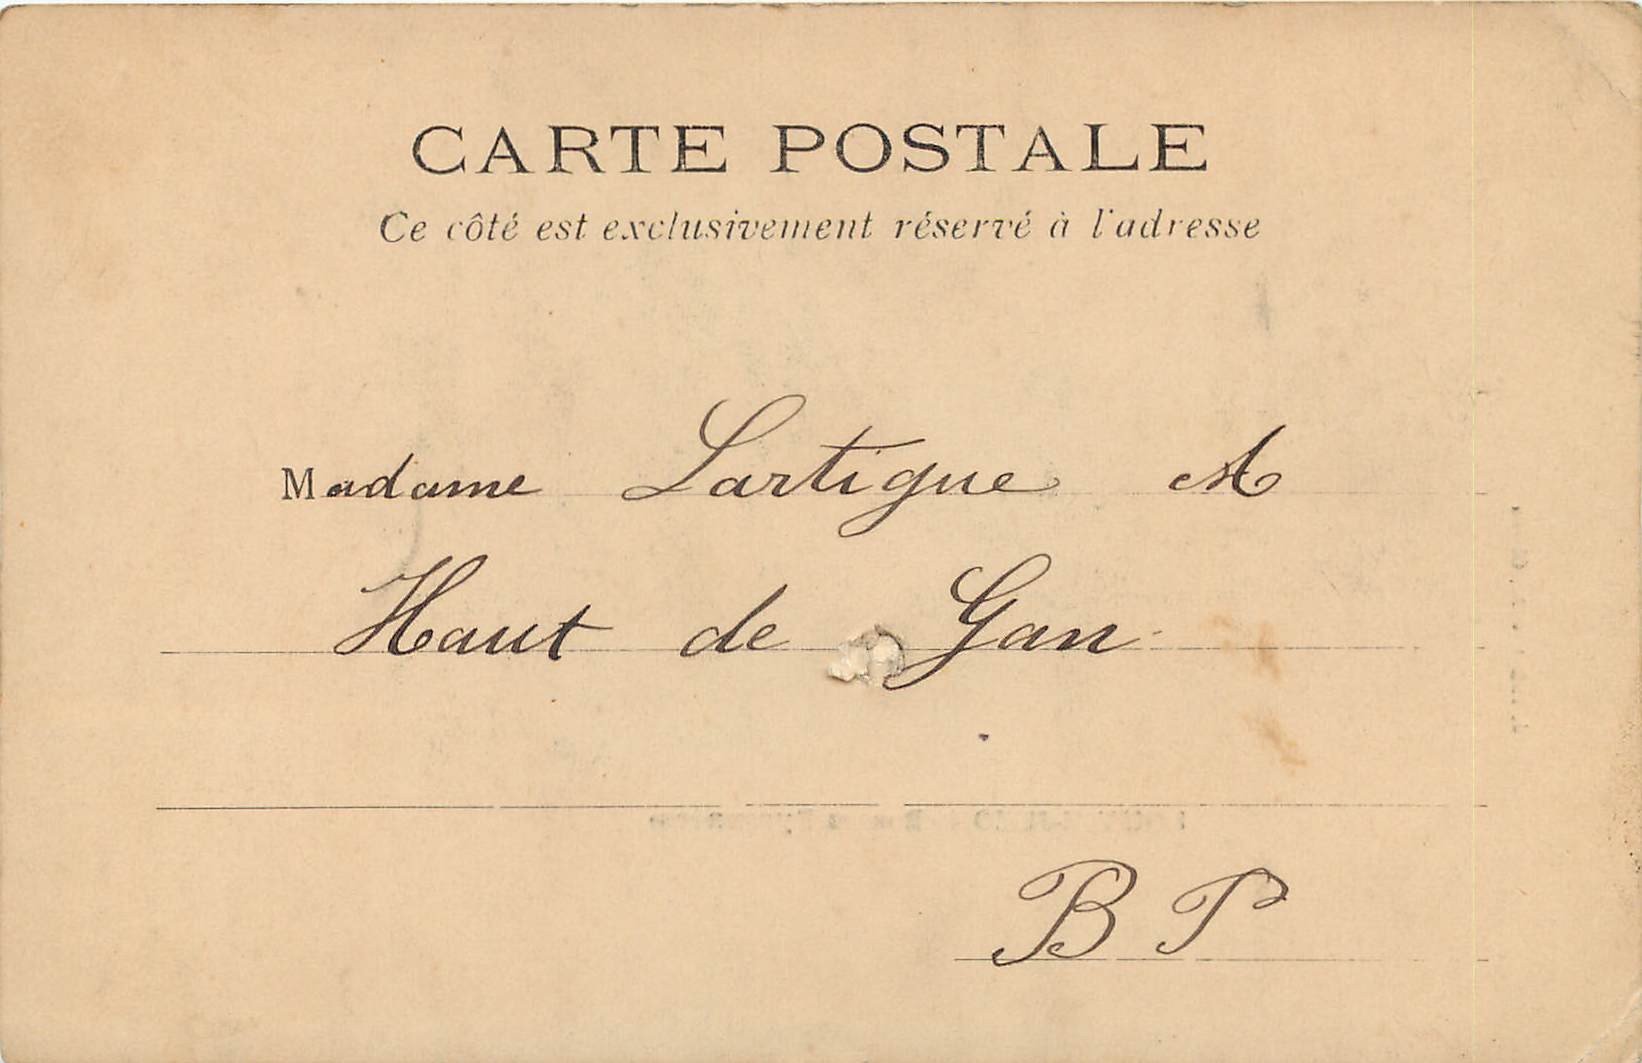 CARTE POSTALE
Ce côté est exclusivement réservé à l'adresse
Madame Lartigue A
Haut de Gan
B P